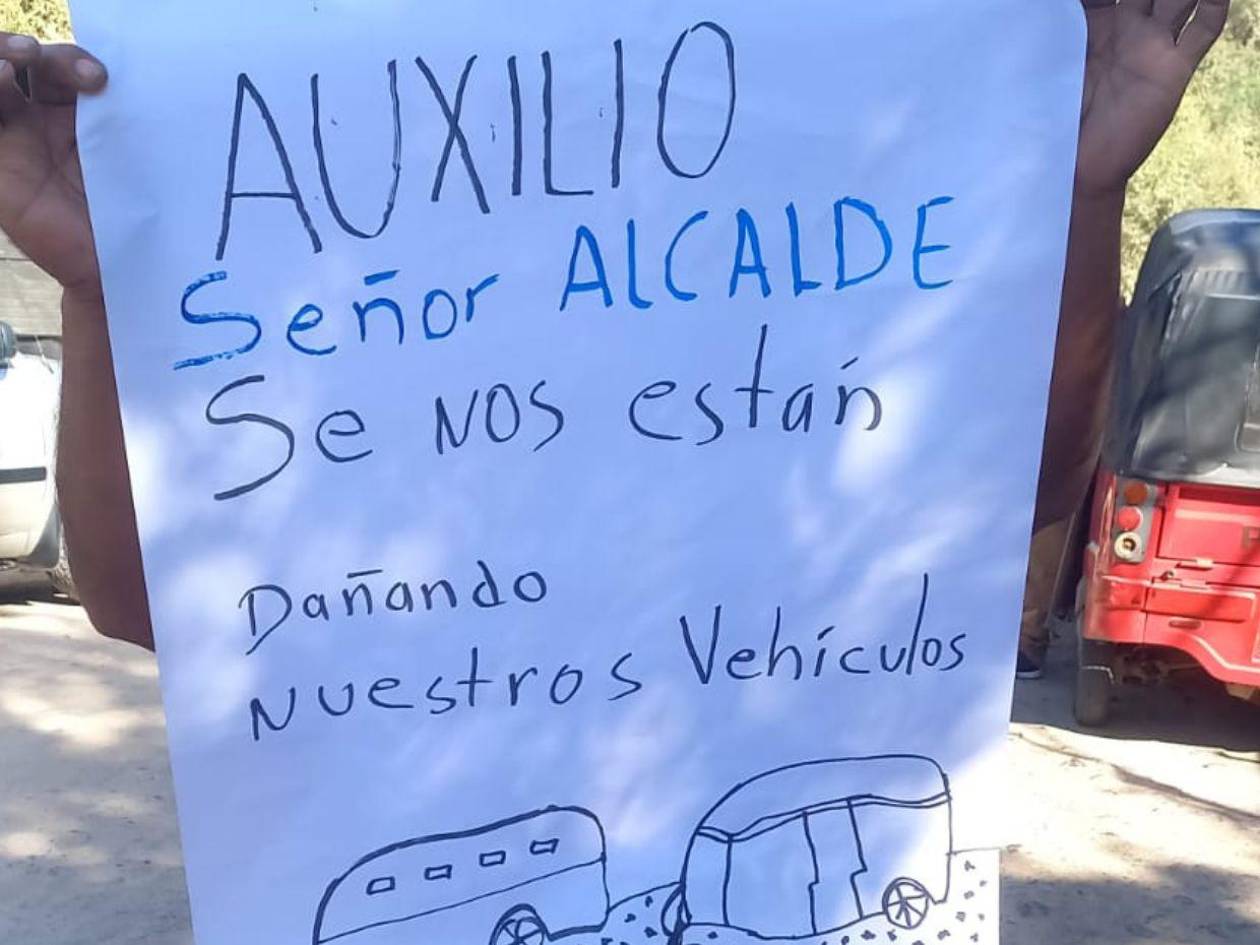 AUXILIO
Señor ALCALDE
Se NOS están
Dañando
NUestros Vehículos